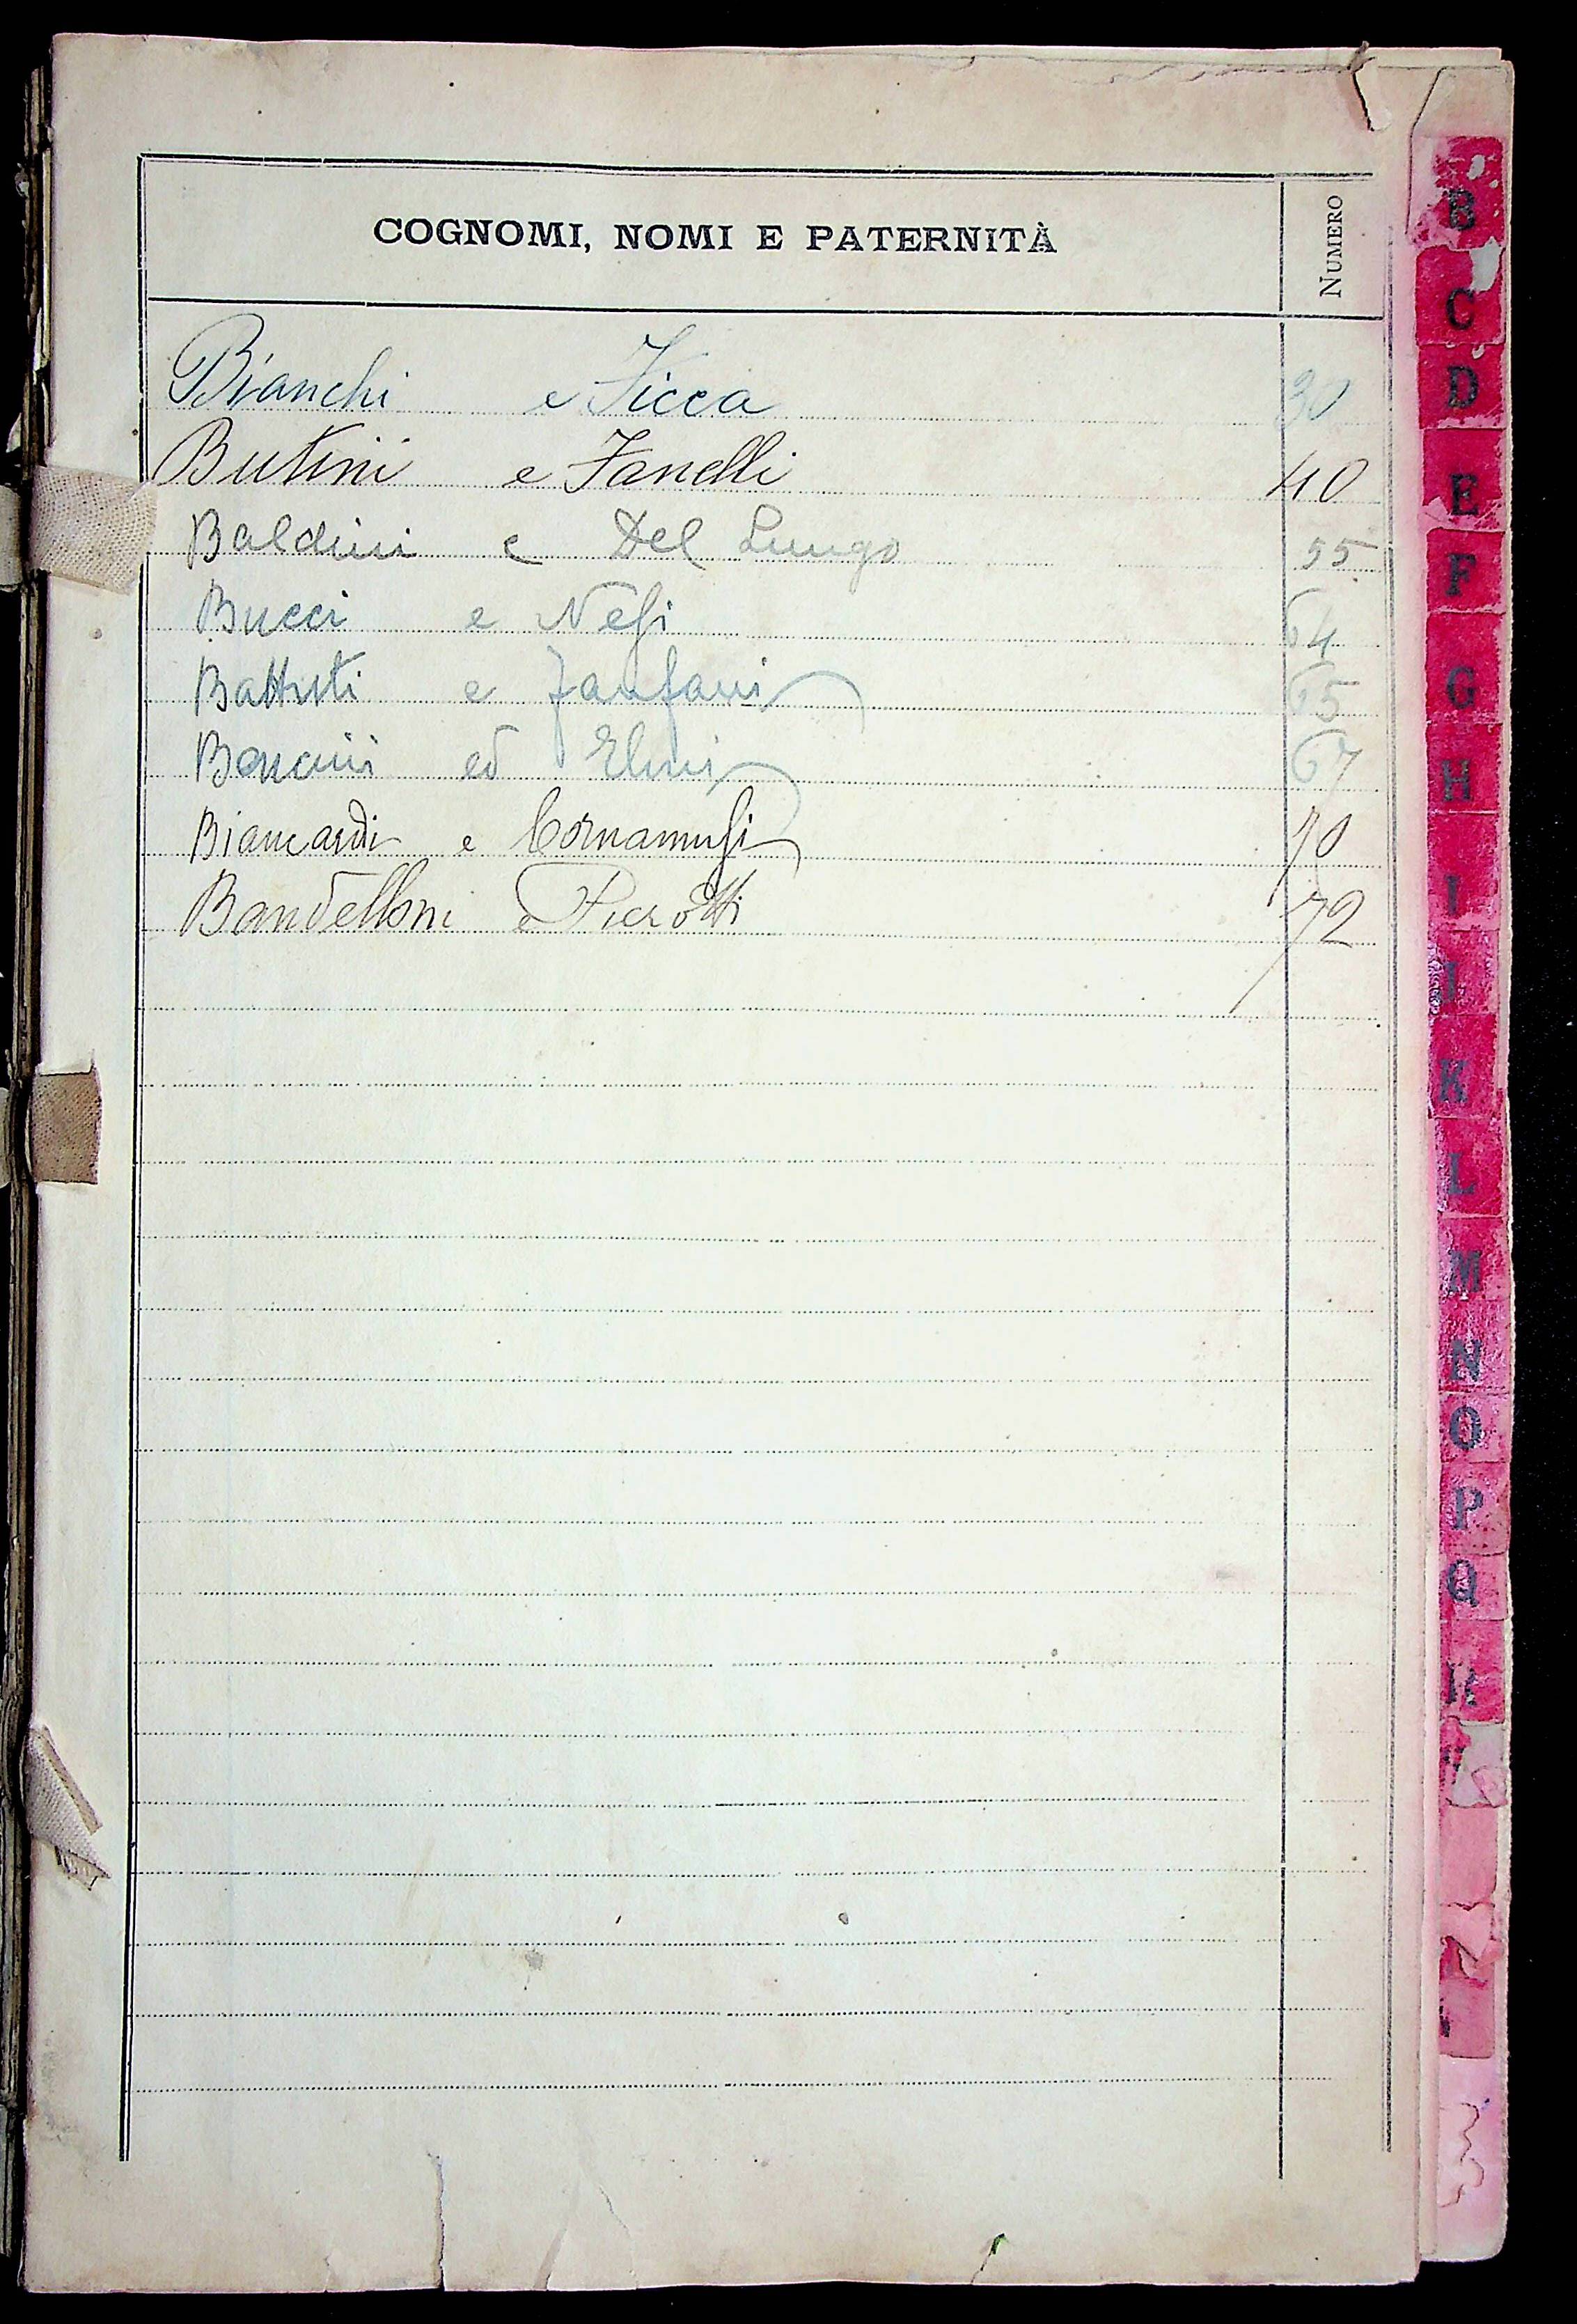 COGNOMI, NOMI E PATERNITÀ NUMERO
Bianchi e Ficca 30
Butini e Fanelli 40
Baldini e Del Lungo 55
Bucci e Nesi 64
Battisti e Fanfani 65
Bonciii ed Elmi 67
Biancardi e Cornamusi 70
Bandelloni e Pierotti 72
B
C
D
E
F
G
H
I
J
K
L
M
N
O
P
Q
R